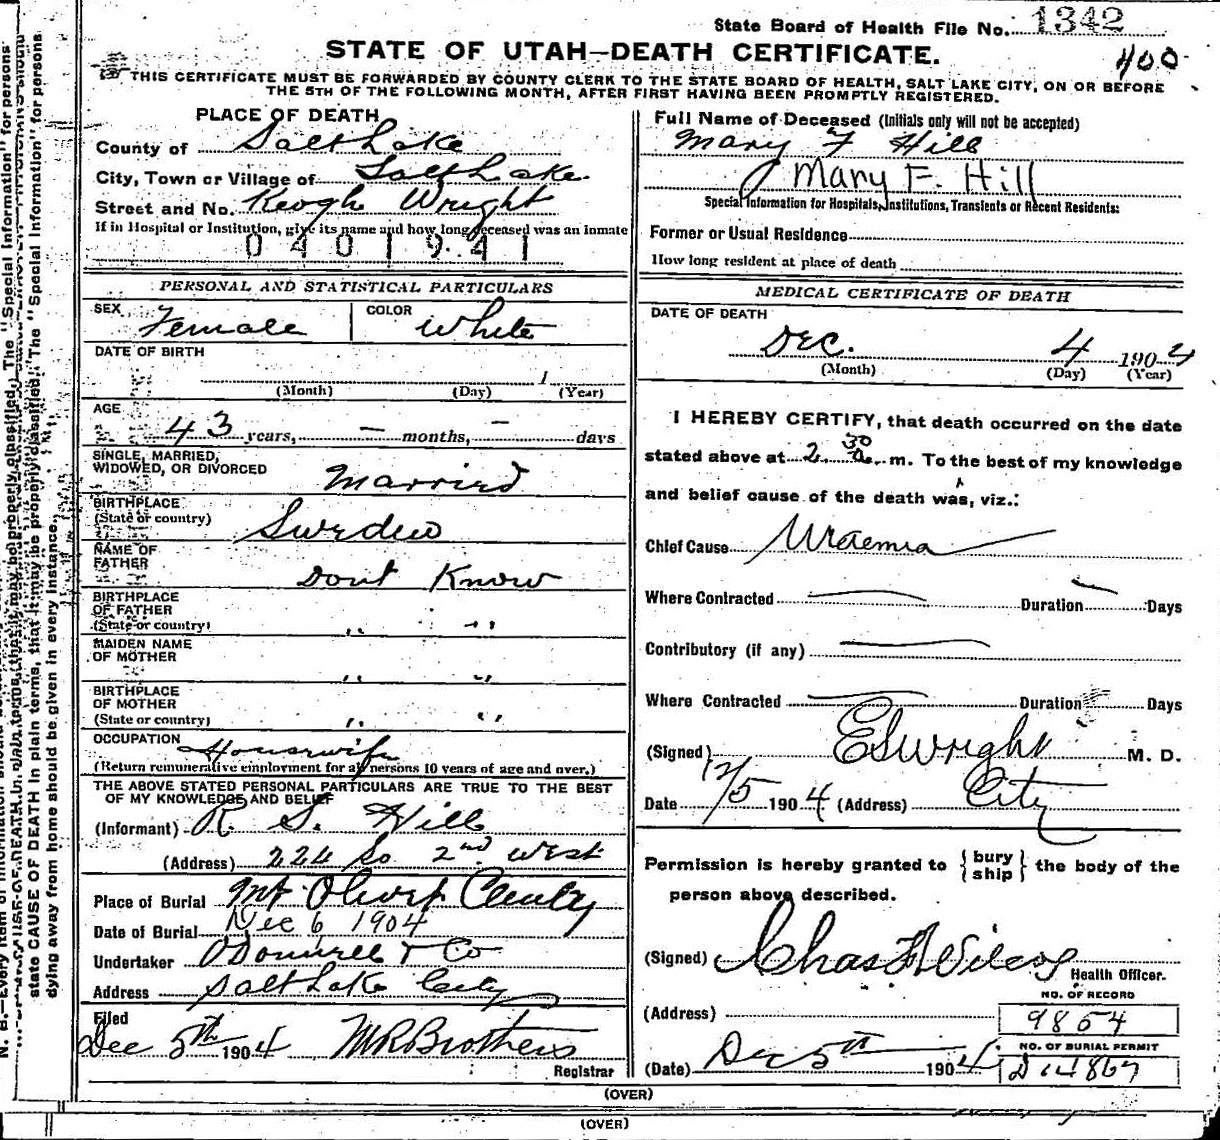 State Board of Health File No. 1342
STATE OF UTAH—DEATH CERTIFICATE.
400
THIS CERTIFICATE MUST BE FORWARDED BY COUNTY CLERK TO THE STATE BOARD OF HEALTH, SALT LAKE CITY, ON OR BEFORE
THE 5TH OF THE FOLLOWING MONTH, AFTER FIRST HAVING BEEN PROMPTLY REGISTERED.
PLACE OF DEATH
County of Salt Lake
City, Town or Village of Salt Lake
Street and No. Keogh Wright
If in Hospital or Institution, give its name and how long deceased was an inmate
0401941
PERSONAL AND STATISTICAL PARTICULARS
SEX Female COLOR White
DATE OF BIRTH
1
(Month) (Day) (Year)
AGE
43 years, — months, — days
SINGLE, MARRIED,
WIDOWED, OR DIVORCED Married
BIRTHPLACE
(State or country) Sweden
NAME OF
FATHER Dont Know
BIRTHPLACE
OF FATHER
(State or country) " "
MAIDEN NAME
OF MOTHER
" "
BIRTHPLACE
OF MOTHER
(State or country) " "
OCCUPATION Housewife
(Return remunerative employment for all persons 10 years of age and over.)
THE ABOVE STATED PERSONAL PARTICULARS ARE TRUE TO THE BEST
OF MY KNOWLEDGE AND BELIEF
(Informant) R. S. Hill
(Address) 224 So 2nd West
Place of Burial Mt Olivet Cemty
Date of Burial Dec 6 1904
Undertaker O'Donnell & Co
Address Salt Lake City
Filed
Dec 5th 1904 M R Brothers
Registrar
Full Name of Deceased (Initials only will not be accepted)
Mary F Hill
Mary F. Hill
Special Information for Hospitals, Institutions, Transients or Recent Residents:
Former or Usual Residence
How long resident at place of death
MEDICAL CERTIFICATE OF DEATH
DATE OF DEATH
Dec. 4 1904
(Month) (Day) (Year)
I HEREBY CERTIFY, that death occurred on the date
stated above at 2 30 a. m. To the best of my knowledge
and belief cause of the death was, viz.:
Chief Cause Uraemia
Where Contracted — Duration — Days
Contributory (if any) —
Where Contracted — Duration Days
(Signed) E S Wright M. D.
Date 12/5 1904 (Address) City
Permission is hereby granted to { bury ship } the body of the
person above described.
(Signed) Chas F Wilcox
Health Officer.
(Address)
NO. OF RECORD
9854
NO. OF BURIAL PERMIT
D 14867
(Date) Dec 5th 1904
(OVER)
(OVER)
state CAUSE OF DEATH in plain terms, that it may be properly classified. The "Special Information" for persons
dying away from home should be given in every instance.